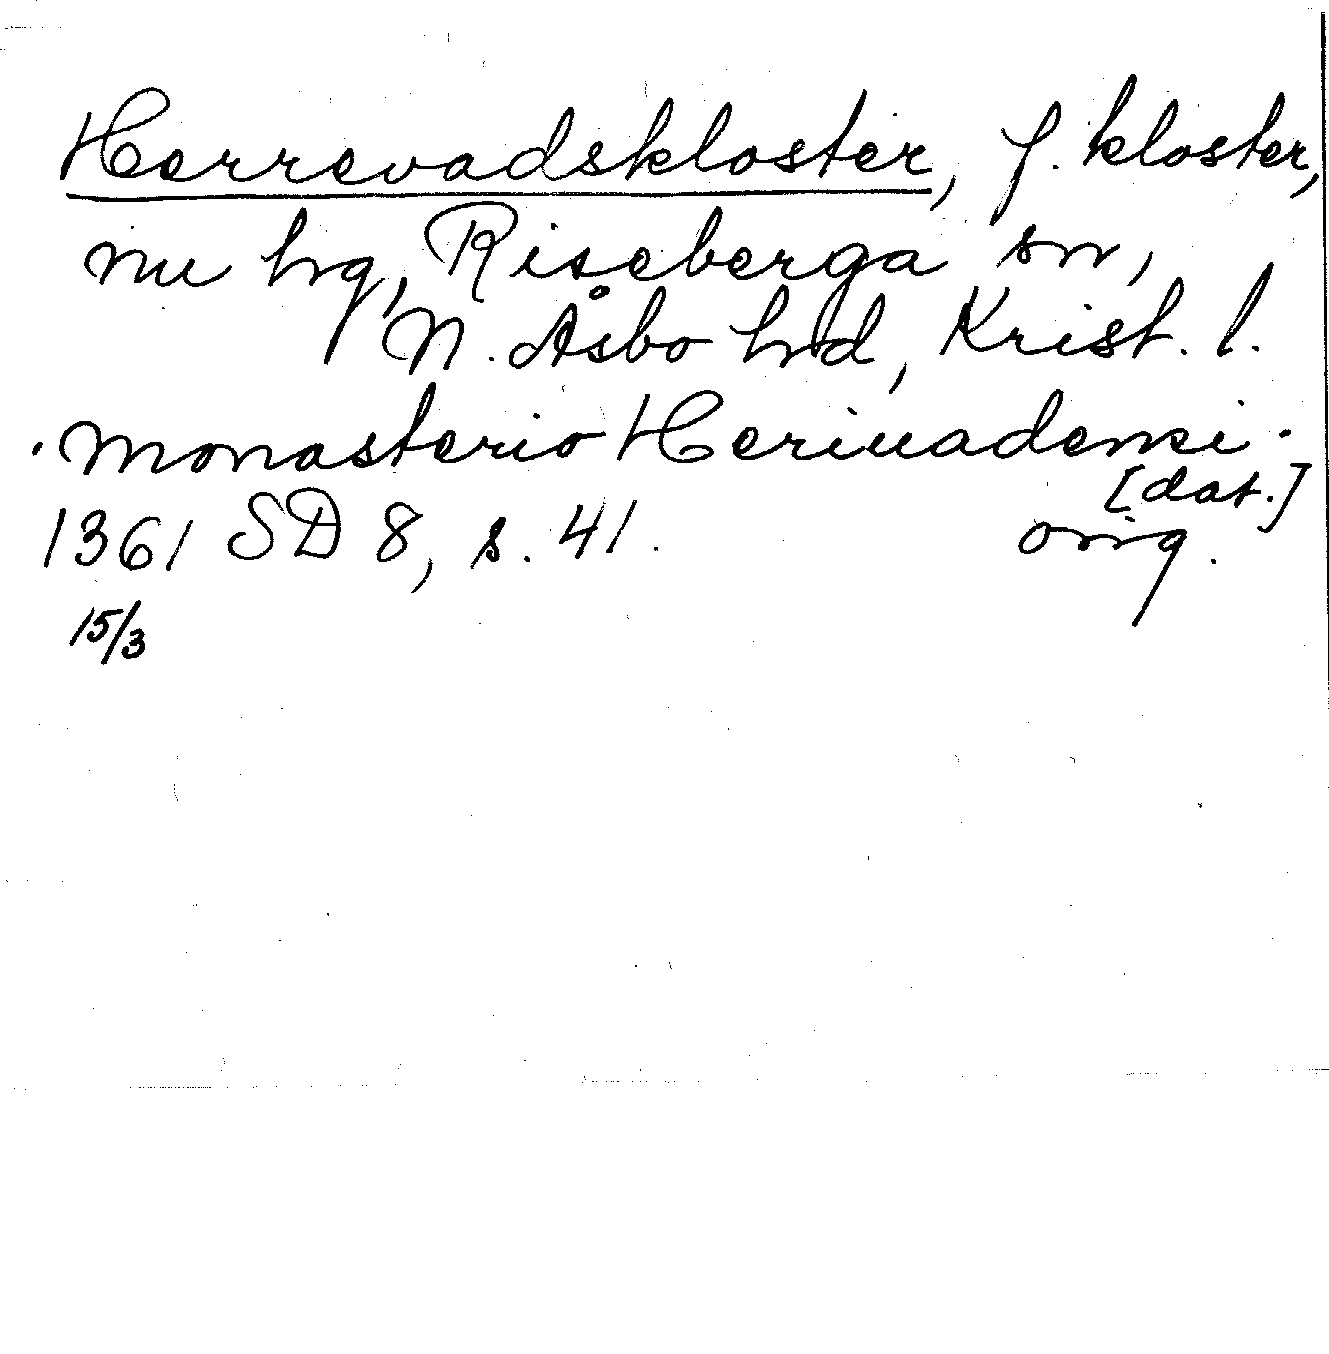 Herrevadskloster, f. kloster,
nu hg, Riseberga sn,
N. Åsbo hd, Krist. l.
. Monasterio Heriuadensi .
[dat.]
1361 SD 8, s. 41. orig.
15/3